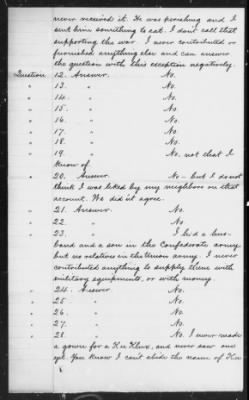 never received it. He was perishing and I
sent him something to eat. I don't call that
supporting the war. I never contributed or
furnished anything else and can answer
the question with this exception negatively.
Question 12. Answer. No.
" 13. " No.
" 14. " No.
" 15. " No.
" 16. " No.
" 17. " No.
" 18. " No.
" 19. " No, not that I
know of.
" 20. Answer. No - but I do not
think I was liked by my neighbors on that
account. We did'nt agree.
" 21. Answer. No.
" 22. " No.
" 23. " I had a hus-
band and a son in the Confederate army
but no relatives in the Union army. I never
contributed anything to supply them with
military equipments, or with money.
" 24. Answer No.
" 25. " No.
" 26. " No.
" 27. " No.
" 28. " No. I never made
a gown for a Ku Klux, and never saw one
yet. You know I can't abide the name of Ku